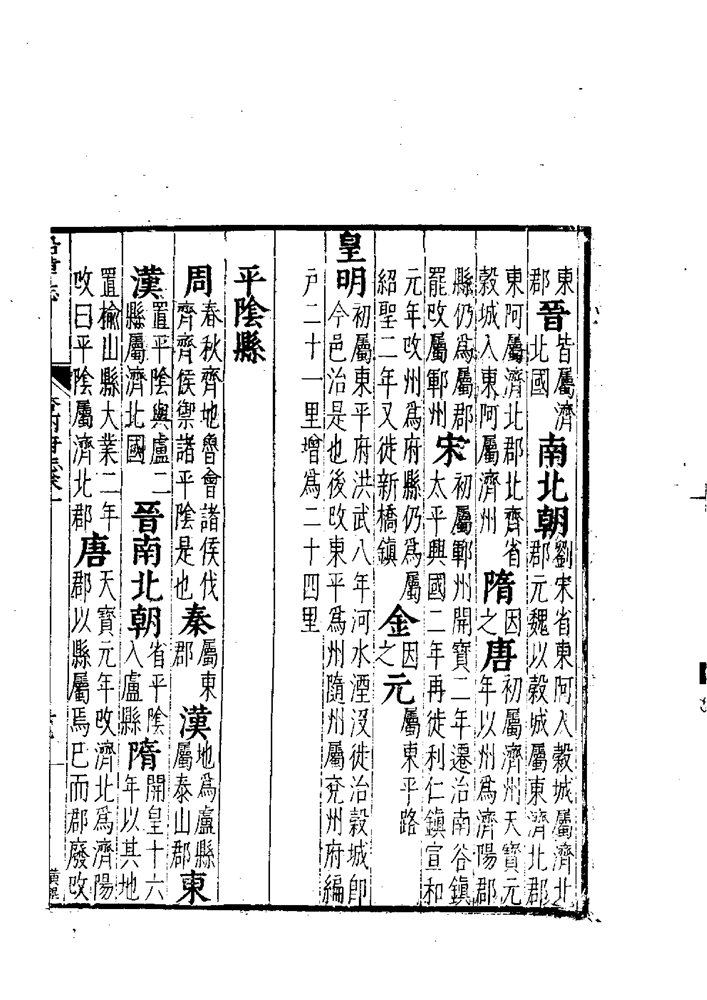 東郡晉皆屬濟北國南北朝劉宋省東阿入穀城屬濟北郡元魏以穀城屬東濟北郡
東阿屬濟北郡北齊省穀城入東阿屬濟州隋因之唐初屬濟州天寶元年以州爲濟陽郡
縣仍爲屬郡罷改屬鄆州宋初屬鄆州開寶二年遷治南谷鎮太平興國二年再徙利仁鎮宣和
元年改州爲府縣仍爲屬紹聖二年又徙新橋鎮金因之元屬東平路
皇明初屬東平府洪武八年河水湮沒徙治穀城即今邑治是也後改東平爲州隨州屬兗州府編
戶二十一里增爲二十四里
平陰縣
周春秋齊地魯會諸侯伐齊齊侯禦諸平陰是也秦屬東郡漢地爲盧縣屬泰山郡東
漢置平陰與盧二縣屬濟北國晉南北朝省平陰入盧縣隋開皇十六年以其地
置榆山縣大業二年改曰平陰屬濟北郡唐天寶元年改濟北爲濟陽郡以縣屬焉已而郡廢改